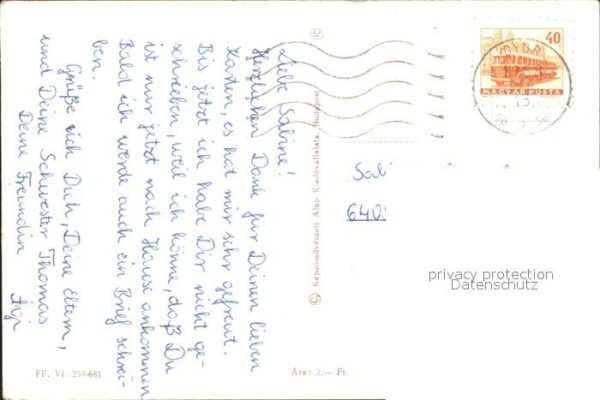 Liebe Sabine!
Herzlichen Dank für Deinen lieben
Karten, es hat mir sehr gefreut.
Bis jetzt ich habe Dir nicht ge-
schreiben, weil ich könne, daß Du
ist nur jetzt nach Hause ankommen
Bald ich werde auch ein Brief schrei-
ben.
Grüße ich Dich, Deine Eltern,
und Deine Schwester Thomas
Deine Freundin
© Képzőművészeti Alap Kiadóvállalata, Budapest
FF. VI. 254-681
Ára: 2,— Ft
40
MAGYAR POSTA
GYŐR
Sab
640
privacy protection
Datenschutz